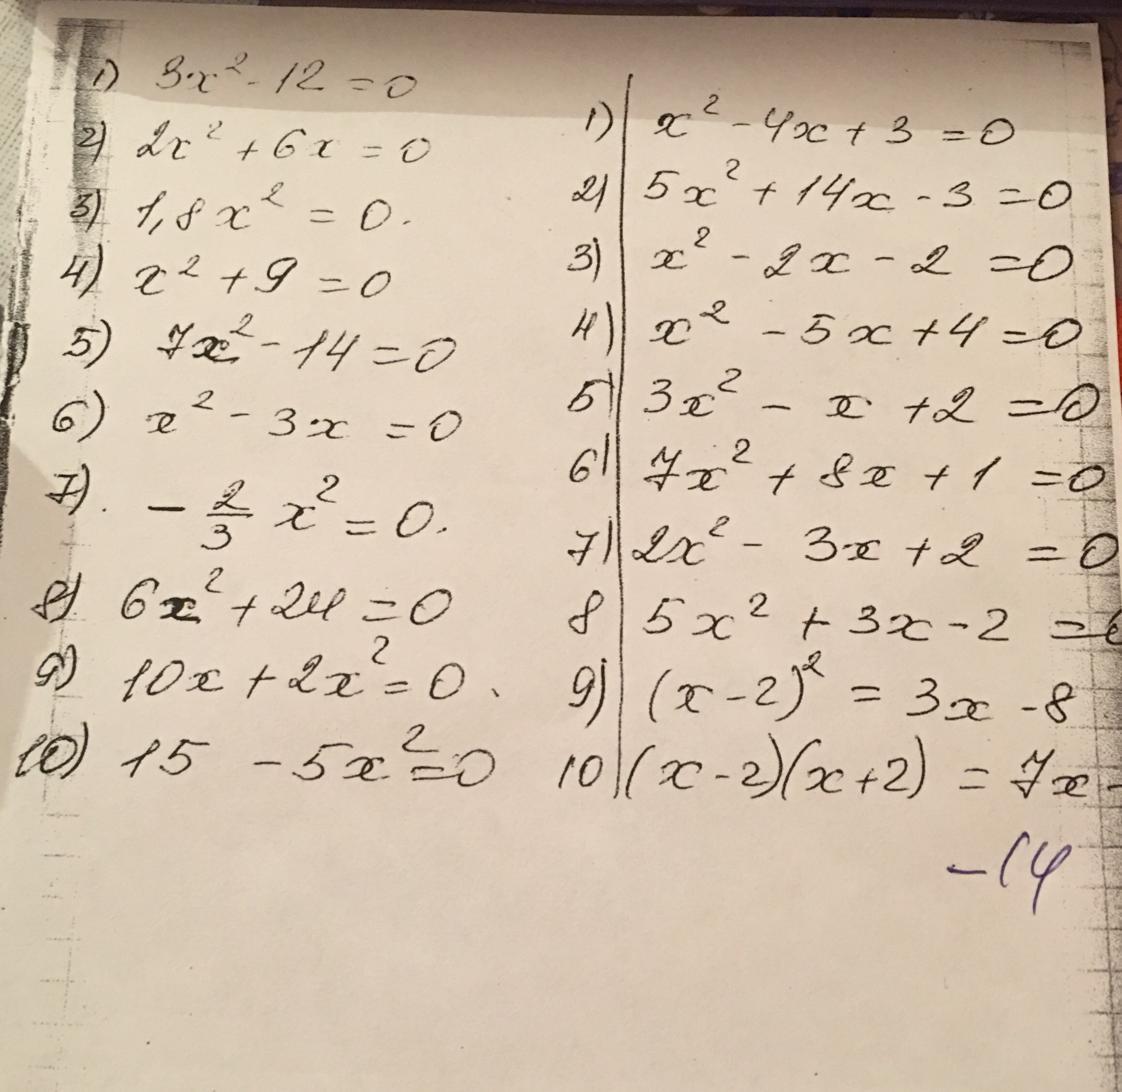 1) 3x² - 12 = 0
2) 2x² + 6x = 0
3) 1,8x² = 0.
4) x² + 9 = 0
5) 7x² - 14 = 0
6) x² - 3x = 0
7). - 2/3 x² = 0.
8) 6x² + 24 = 0
9) 10x + 2x² = 0.
10) 15 - 5x² = 0
1) x² - 4x + 3 = 0
2) 5x² + 14x - 3 = 0
3) x² - 2x - 2 = 0
4) x² - 5x + 4 = 0
5) 3x² - x + 2 = 0
6) 7x² + 8x + 1 = 0
7) 2x² - 3x + 2 = 0
8 5x² + 3x - 2 = 0
9) (x - 2)² = 3x - 8
10 (x - 2)(x + 2) = 7x -
-14